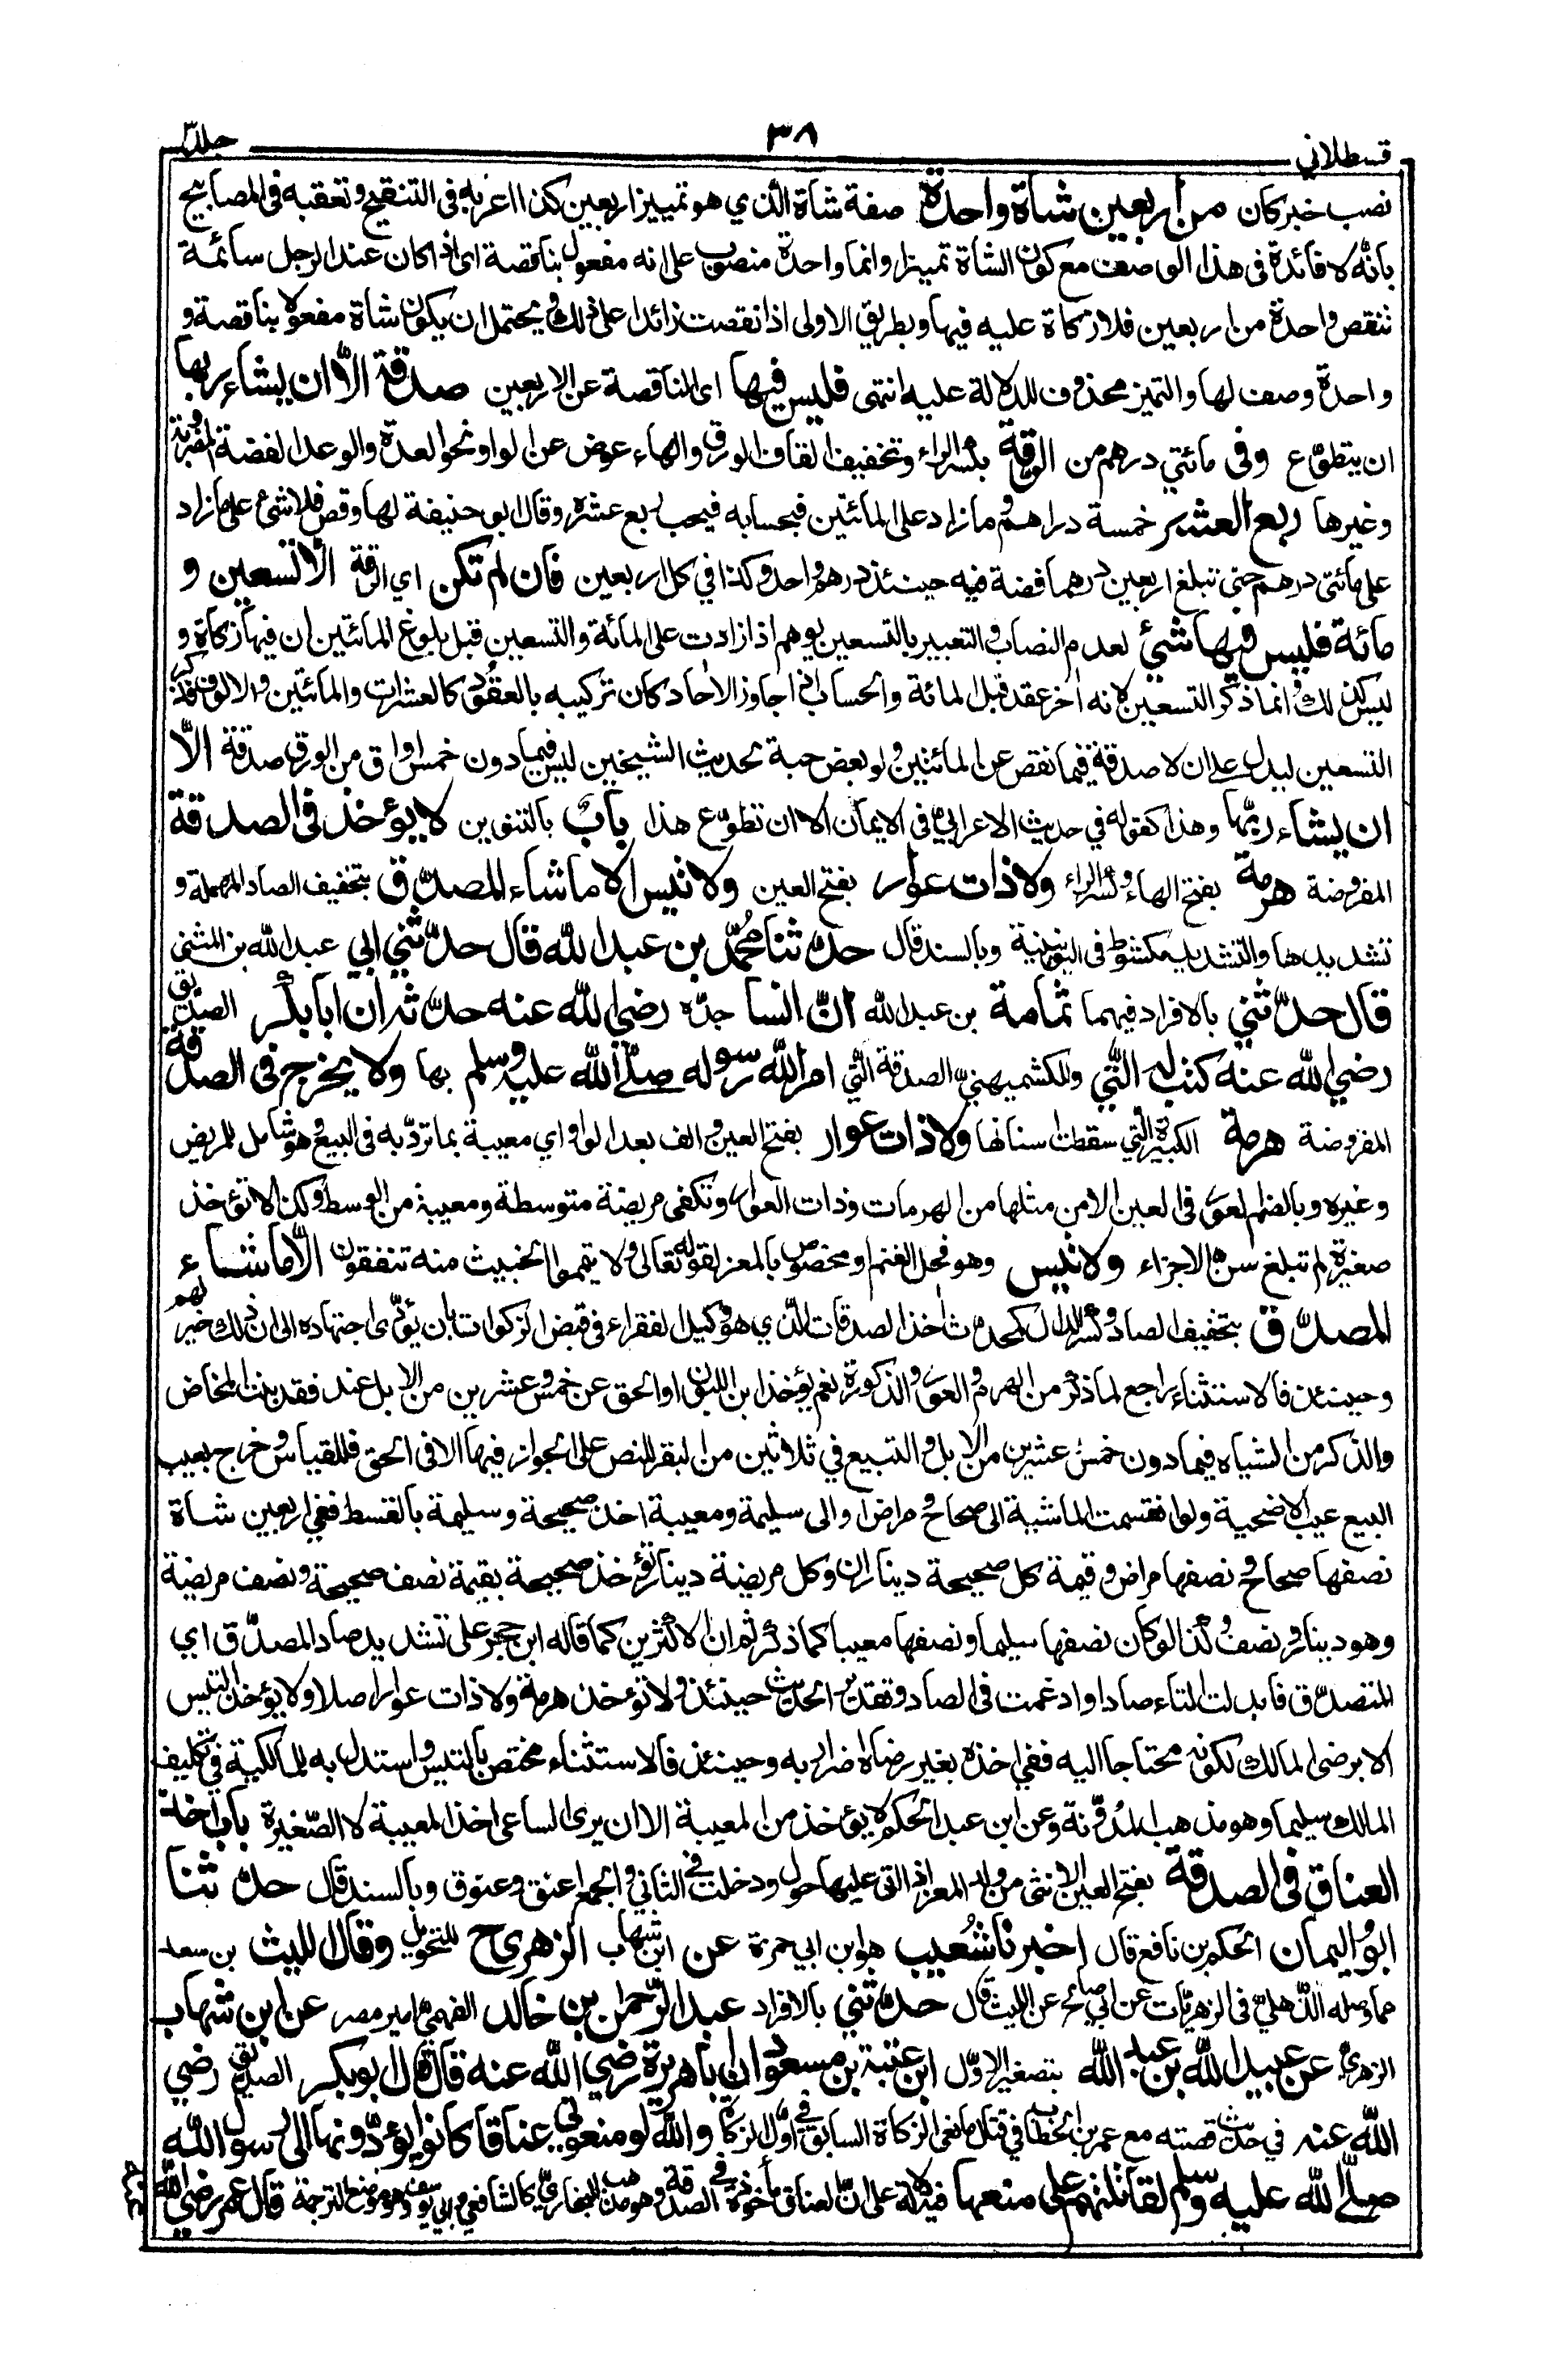 قسطلاني
٣٨
جلد ٣
نصب خبر كان من أربعين شاة واحدة صفة شاة الذي هو تمييز اربعين كذا اعربه في التنقيح وتعقبه في المصابيح
بانه لا فائدة في هذا الوصف مع كون الشاة تمييزا وانما واحدة منصوب على انه مفعول بناقصة اي اذا كان عند الرجل سائمة
تنقص واحدة من اربعين فلا زكاة عليه فيها وبطريق الاولى اذا نقصت زائدا على ذلك ويحتمل ان يكون شاة مفعولا بناقصة و
واحدة وصف لها والتمييز محذوف للدلالة عليه انتهى فليس فيها اي الناقصة عن الاربعين صدقة الّا ان يشاء ربها
ان يتطوّع وفي مائتي درهم من الرقة بكسر الراء وتخفيف القاف الورق والهاء عوض عن الواو نحو العدة والوعد الفضة المضروبة
وغيرها ربع العشر خمسة دراهم وما زاد على المائتين فبحسابه فيجب ربع عشره وقال ابو حنيفة لها وقص فلا شئ على ما زاد
على مائتي درهم حتى تبلغ اربعين درهما فضة ففيه حينئذ درهم واحد وكذا في كل اربعين فان لم تكن اي الرقة الّا تسعين و
مائة فليس فيها شئ لعدم النصاب والتعبير بالتسعين يوهم اذا زادت على المائة والتسعين قبل بلوغ المائتين ان فيها زكاة و
ليس كذلك وانما ذكر التسعين لانه آخر عقد قبل المائة والحساب اذا جاوز الآحاد كان تركيبه بالعقود كالعشرات والمائتين والالوف فذكر
التسعين ليدل على ان لا صدقة فيما نقص عن المائتين ولو بعض حبة لحديث الشيخين ليس فيما دون خمس اواق من الورق صدقة الّا
ان يشاء ربّها وهذا كقوله في حديث الاعرابي في الايمان الا ان تطوّع هذا بابٌ بالتنوين لا يؤخذ في الصدقة
المفروضة هرمة بفتح الهاء وكسر الراء ولا ذات عوار بفتح العين ولا تيس الا ما شاء المصدّق بتخفيف الصاد المهملة و
تشديدها والتشديد مكشوط في اليونينية وبالسند قال حدّثنا محمّد بن عبد الله قال حدّثني ابي عبد الله بن المثنى
قال حدّثني بالافراد فيهما ثمامة بن عبد الله انّ انسا جدّه رضي الله عنه حدّثه ان ابا بكر الصديق
رضي الله عنه كتب له التّي وللكشميهني الصدقة التي امر الله رسوله صلّى الله عليه وسلم بها ولا يخرج في الصدقة
المفروضة هرمة الكبيرة التي سقطت اسنانها ولا ذات عوار بفتح العين والف بعد الواو اي معيبة بما تردّ به في البيع وهو شامل للمريض
وغيره وبالضم العور في العين الا من مثلها من الهرمات وذات العوار وتكفي مريضة متوسطة ومعيبة من الوسط وكذا لا تؤخذ
صغيرة لم تبلغ سن الاجزاء ولا تيس وهو فحل الغنم او مخصوص بالمعز لقوله تعالى ولا تيمموا الخبيث منه تنفقون الّا ما شاء
المصدّق بتخفيف الصاد وكسر الدال كمحدث آخذ الصدقات الذي هو وكيل الفقراء في قبض الزكوات بان يؤدّى اجتهاده الى ان ذلك خير لهم
وحينئذ فالاستثناء راجع لما ذكر من الهرم والعور والذكورة نعم يؤخذ ابن اللبون او الحق عن خمس وعشرين من الابل عند فقد بنت المخاض
والذكر من الشياه فيما دون خمس وعشرين من الابل والتبيع في ثلاثين من البقر للنص على الجواز فيها الا في الحق فللقياس وخرج بعيب
البيع عيب الاضحية ولو انقسمت الماشية الى صحاح ومراض او الى سليمة ومعيبة اخذ صحيحة وسليمة بالقسط ففي اربعين شاة
نصفها صحاح ونصفها مراض وقيمة كل صحيحة ديناران وكل مريضة دينار تؤخذ صحيحة بقيمة نصف صحيحة ونصف مريضة
وهو دينار ونصف وكذا لو كان نصفها سليما ونصفها معيبا كما ذكر ثم ان الاكثرين كما قاله ابن حجر على تشديد صاد المصدّق اي
المتصدّق فابدلت التاء صادا وادغمت في الصاد وتقدير الحديث حينئذ ولا تؤخذ هرمة ولا ذات عوار اصلا ولا يؤخذ التيس
الا برضى المالك لكونه محتاجا اليه ففي اخذه بغير رضاه اضرار به وحينئذ فالاستثناء مختص بالتيس واستدل به للمالكية في تكليف
المالك سليما وهو مذهب المدوّنة وعن ابن عبد الحكم لا يؤخذ من المعيبة الا ان يرى الساعي اخذ المعيبة لا الصّغيرة باب اخذ
العناق في الصدقة بفتح العين الانثى من ولد المعز اذا اتى عليها حول ودخلت في الثاني والجمع اعنق وعنوق وبالسند قال حدّثنا
ابو اليمان الحكم بن نافع قال اخبرنا شُعيب هو ابن ابي حمزة عن ابن شهاب الزهري ح للتحويل وقال الليث بن سعد
مما وصله الذّهلي في الزهريّات عن ابي صالح عن الليث قال حدّثني بالافراد عبد الرّحمن بن خالد الفهمي امير مصر عن ابن شهاب
الزهري عن عبيد الله بن عبد الله بتصغير الاوّل ابن عتبة بن مسعود ان ابا هريرة رضي الله عنه قال قال ابو بكر الصديق رضي
الله عنه في حديث قصته مع عمر بن الخطاب في قتال مانعي الزكاة السابق في اوّل الزكاة والله لو منعوني عناقا كانوا يؤدّونها الى رسول الله
صلّى الله عليه وسلم لقاتلتهم على منعها فيه دلالة على انّ العناق مأخوذة في الصدقة وهو مذهب البخاري كالشافعي وابي يوسف وهو موضع الترجمة قال عمر رضي الله